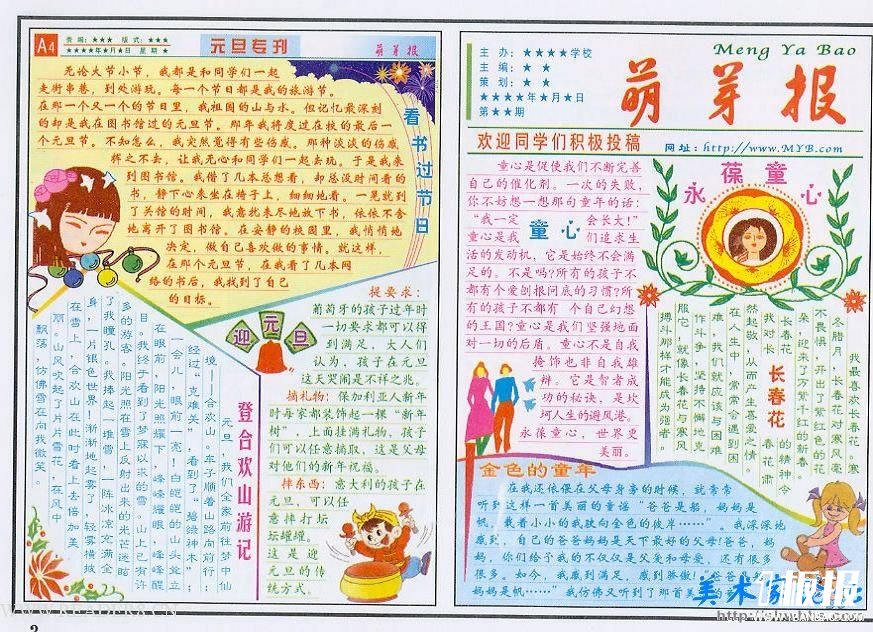 A4
责编：★★★ 版式：★★★
★★★★年★月★日 星期★
元旦专刊
萌芽报
看书过节日
无论大节小节，我都是和同学们一起
走街串巷，到处游玩。每一个节日都是我的旅游节。
在那一个又一个的节日里，我祖国的山与水。但记忆最深刻
的却是我在图书馆过的元旦节。那年我将度过在校的最后一
个元旦节。不知怎么，我突然觉得有些伤感。那种淡淡的伤感
挥之不去，让我无心和同学们一起去玩。于是我来
到图书馆。我借了几本总想看，却总没时间看的
书，静下心来坐在椅子上，细细地看。一晃就到
了关馆的时间，我意犹未尽地放下书，依依不舍
地离开了图书馆。在安静的校园里，我悄悄地
决定，做自己喜欢做的事情。就这样，
在那个元旦节，在我看了几本网
络的书后，我找到了自己
的目标。
迎元旦
提要求：
葡萄牙的孩子过年时
一切要求都可以得
到满足，大人们
认为，孩子在元旦
这天哭闹是不祥之兆。
摘礼物：保加利亚人新年
时每家都装饰起一棵“新年
树”，上面挂满礼物，孩子
们可以任意摘取，这是父母
对他们的新年祝福。
摔东西：意大利的孩子在
元旦，可以任
意摔打坛
坛罐罐。
这是迎
元旦的传
统方式。
登合欢山游记
元旦，我们全家前往梦中仙
境——合欢山。车子顺着山路向前行：
经过“克难关”，看到了“碧绿神木”；
一会儿，眼前一亮！白皑皑的山头耸立
在眼前，阳光照耀下，峰峰耀眼，峰峰醒
目。我终于看到了梦寐以求的雪。山上已有许
多的游客。阳光照在雪上反射出来的光芒眩
了我瞳孔。我捧起一堆雪，一阵冰凉充满全
身，一片银色世界！渐渐地起雾了，轻雾横披
在雪上，合欢山在此时看上去倍加美
丽。山风吹起了片片雪花，在风中
飘落，仿佛雪在向我微笑。
主办：★★★★学校
主编：★★
策划：★★
★★★★年★月★日
第★★期
Meng Ya Bao
萌芽报
欢迎同学们积极投稿
网址：http://www.MYB.com
童心是促使我们不断完善
自己的催化剂。一次的失败，
你不妨想一那句童年的话：
“我一定 会长大！”
童心是我 们追求生
童心
活的发动机，它是始终不会满
足的。不是吗？所有的孩子不
都有个爱刨根问底的习惯？所
有的孩子不都有 个自己幻想
的王国？童心是我们坚强地面
对一切的后盾。童心不是自我
掩饰也非自我雄
辩。它是智者成
功的秘诀，是坎
坷人生的避风港。
永葆童心，世界更
美丽。
永葆童心
我最喜欢长春花。寒
冬腊月，长春花对寒风毫
不畏惧，开出了紫红色的花
朵，迎来了万紫千红的新春。
长春花 的精神令
我对长 春花肃
长春花
然起敬，从而产生喜爱之情。
在人生中，常常会遇到困
难，我们就应该与困难
作斗争，坚持不懈地克
服它，就像长春花与寒风
搏斗那样才能成为强者。
金色的童年
在我还依偎在父母身旁的时候，就常常
听到这样一首美丽的童谣“爸爸是船，妈妈是
帆，载着小小的我驶向金色的彼岸……”。我深深地
感到，自己的爸爸妈妈是天下最好的父母！爸爸，妈
妈，你们给予我的不仅仅是父爱和母爱，还有很多
很多。如今，我感到满足，感到骄傲！“爸爸
妈妈是帆……”我仿佛又听到了那首美
板报
2